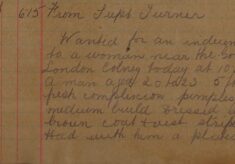 615 From Supt Turner
Wanted for an indecen
to a woman near the
London Colney today at 10
a man age 20 to 23 5 f
fresh complexion pimples
medium build Dressed
brown coat & vest strip
Had with him a